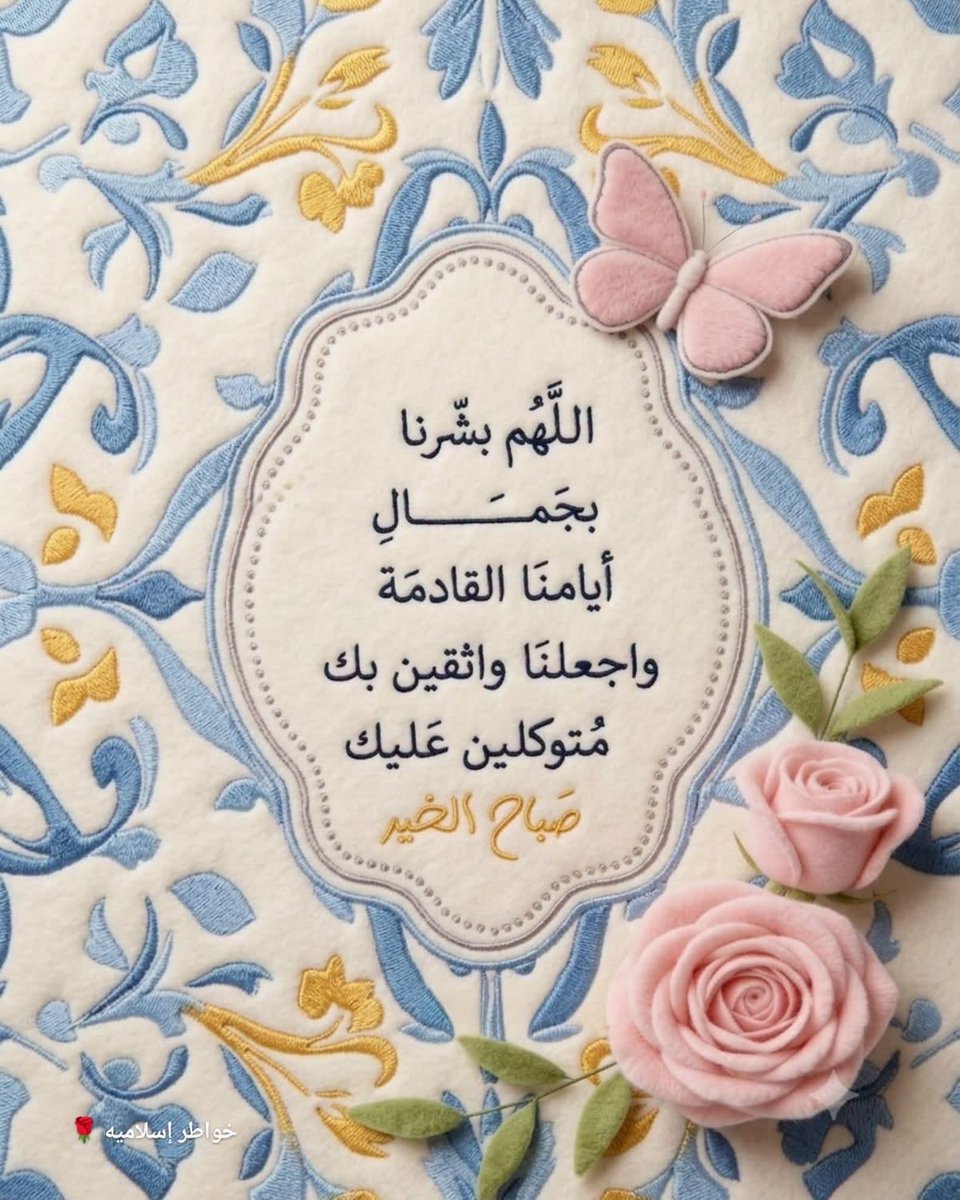 اللَّهُم بشّرنا
بجَمَــــــالِ
أيامنَا القادمَة
واجعلنَا واثقين بك
مُتوكلين عَليك
صَباح الخير
خواطر إسلاميه 🌹